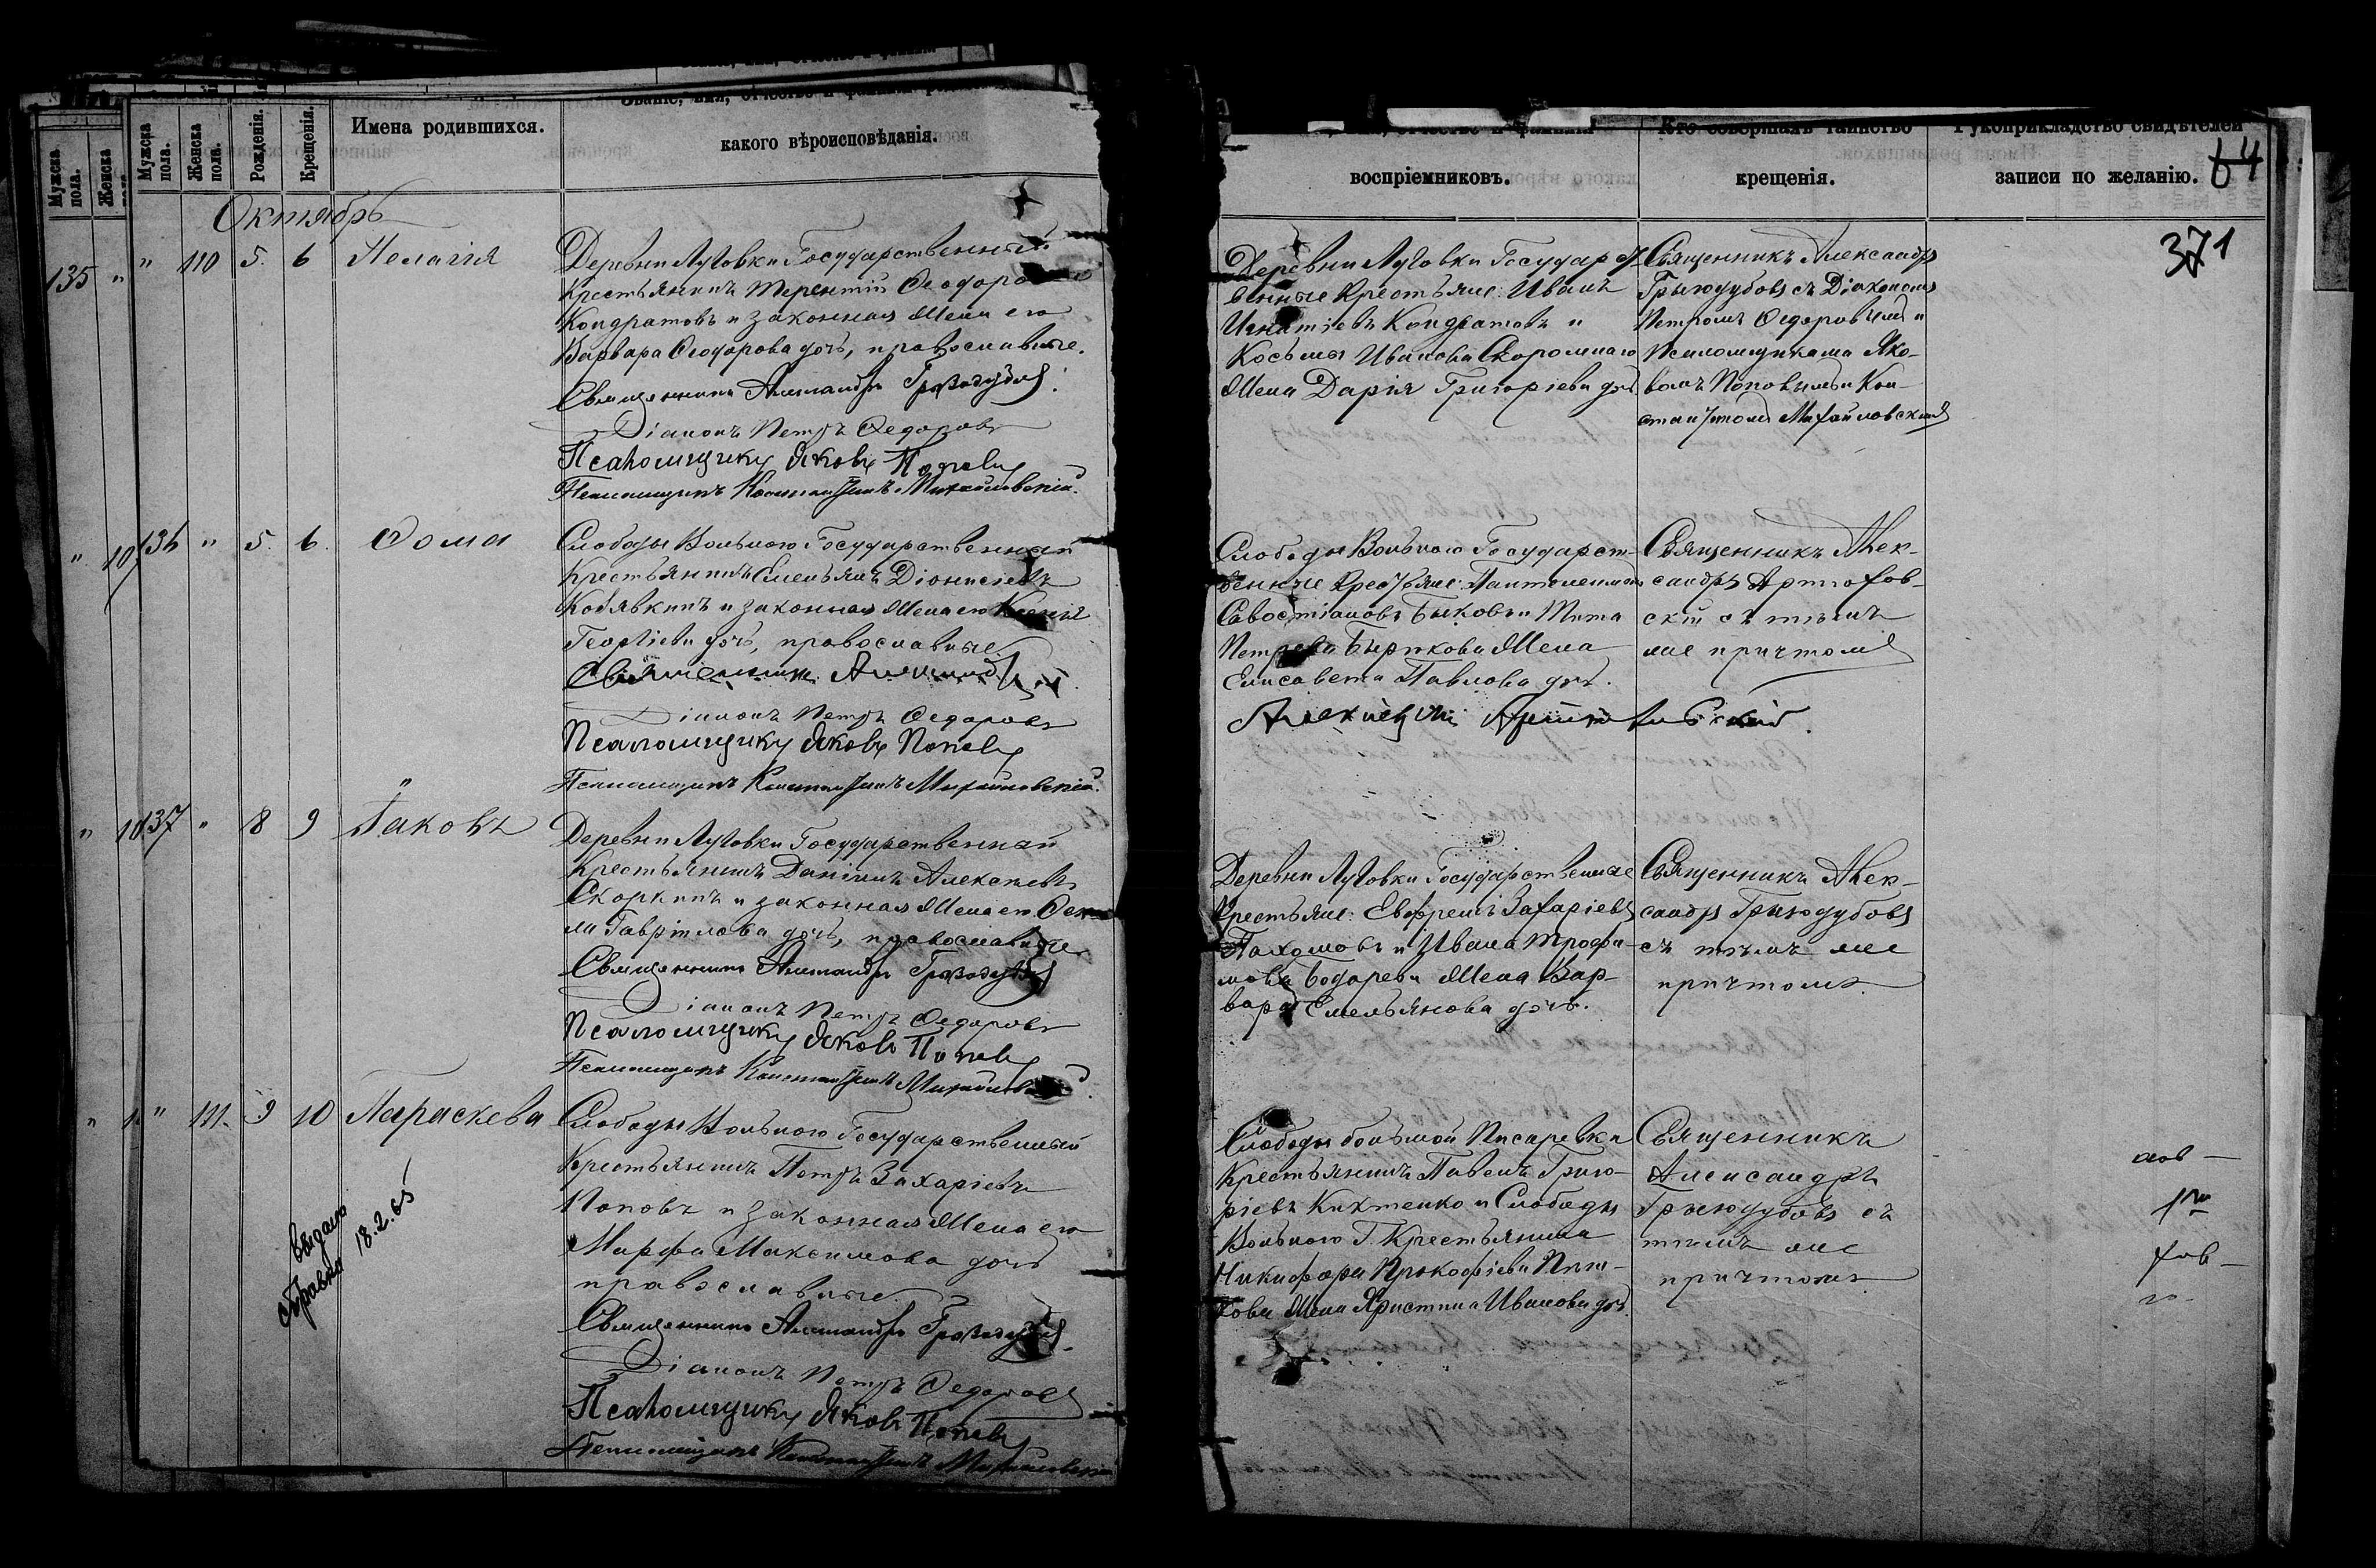 Мужска пола.
Женска
Мужска пола.
Женска пола.
Рожденія.
Крещенія.
Имена родившихся.
какого вѣроисповѣданія.
Октябрь
135 "
" 110 5. 6 Пелагія
Деревни Луговки Государственный
Крестьянинъ Терентій Ѳеодоровъ
Кондратовъ и законная жена его
Варвара Ѳеодорова дочь, православные.
Священникъ Александръ
Діаконъ Петръ Ѳедоровъ
Псаломщикъ Яковъ Поповъ
Псаломщикъ Константинъ Михайловскій.
136 " 5. 6. Ѳома
Слободы Вольного Государственный
Крестьянинъ Емельянъ Діонисіевъ
Кобявкинъ и законная жена его Ксенія
Георгіева дочь, православные
Священникъ
Діаконъ Петръ Ѳедоровъ
Псаломщикъ Яковъ Поповъ
Псаломщикъ Константинъ Михайловскій.
137 " 8 9 Іаковъ
Деревни Луговки Государственный
Крестьянинъ Даніилъ Алексѣевъ
Скоркинъ и законная жена его
Гавріилова дочь, православные
Священникъ Александръ
Діаконъ Петръ Ѳедоровъ
Псаломщикъ Яковъ Поповъ
Псаломщикъ Константинъ
" 111. 9 10 Параскева
Слободы Вольного Государственный
Крестьянинъ Петръ Захаріевъ
Поповъ и законная жена его
Марфа Максимова дочь
православные
Священникъ Александръ
Діаконъ Петръ Ѳедоровъ
Псаломщикъ Яковъ Поповъ
Псаломщикъ Константинъ Михайловскій
выдано
справка 18.2.65
воспріемниковъ.
Кто совершалъ таинство
крещенія.
Рукоприкладство свидѣтелей
записи по желанію.
64
371
Деревни Луговки Государст-
венные Крестьяне: Иванъ
Игнатіевъ Кондратовъ и
Косьмы Иванова
жена Дарія Григоріева дочь
Священникъ Александръ
съ Діакономъ
Петромъ Ѳедоровымъ и
Псаломщиками Яко-
вомъ Поповымъ и Кон-
стантиномъ Михайловскимъ
Слободы Вольного Государст-
венные Крестьяне: Пантелеимонъ
Савостіановъ Быковъ и Тита
Петрова жена
Елисавета Павлова дочь.
Священникъ Алек-
сандръ Артюхов-
скій съ тѣмъ
же причтомъ
Деревни Луговки Государственные
Крестьяне: Ефремъ Захаріевъ
Пахомовъ и Ивана Трофи-
мова жена Вар-
вара Емельянова дочь.
Священникъ Алек-
сандръ
съ тѣмъ же
причтомъ
Слободы большой Писаревки
Крестьянинъ Павелъ Григо-
ріевъ Кихтенко и Слободы
Вольного Г. Крестьянина
Никифора Прокофіева
жена Христина Иванова дочь.
Священникъ
Александръ
съ
тѣмъ же
причтомъ